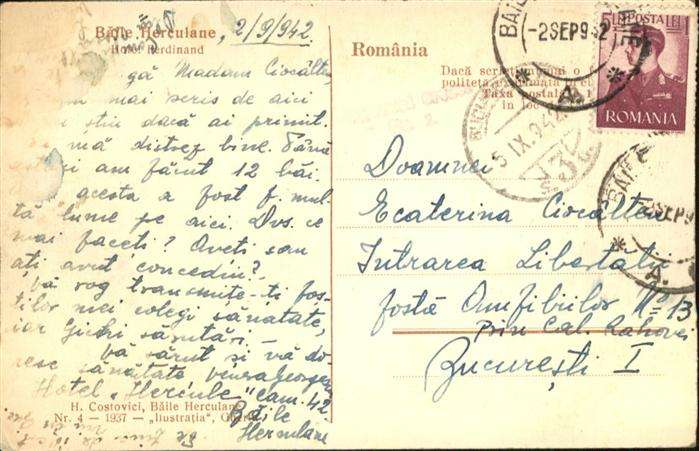 Băile Herculane, 2/9/942
Hotel Ferdinand
gă Madam Ciocâlteu
mai scris de aici
știu dacă ai primit.
mă distrez bine. Până
am făcut 12 băi.
acesta a fost f. mul-
tă lume pe aici. Dvs. ce
mai faceți? Aveți sau
ați avut concediu?
Vă rog transmite-ți foș-
tilor mei colegi sănatate,
iar Gichi sănătări.
Vă sărut și vă do-
resc sănătate
Hotel "Hercule" cam. 42
Băile
Herculane
H. Costovici, Băile Herculane
Nr. 4 — 1937 — „Ilustrația",
România
Dacă scrieți numai o
politeță
Taxa poștală
în loc
5 LEI POSTA LEI
ROMANIA
-2SEP942
A.
5 IX. 942
2SEP9
A.
Doamnei
Ecaterina Ciocâlteu
Intrarea Libertatii
fostă Amfibiilor No 13
prin Cal. Rahovei
București I